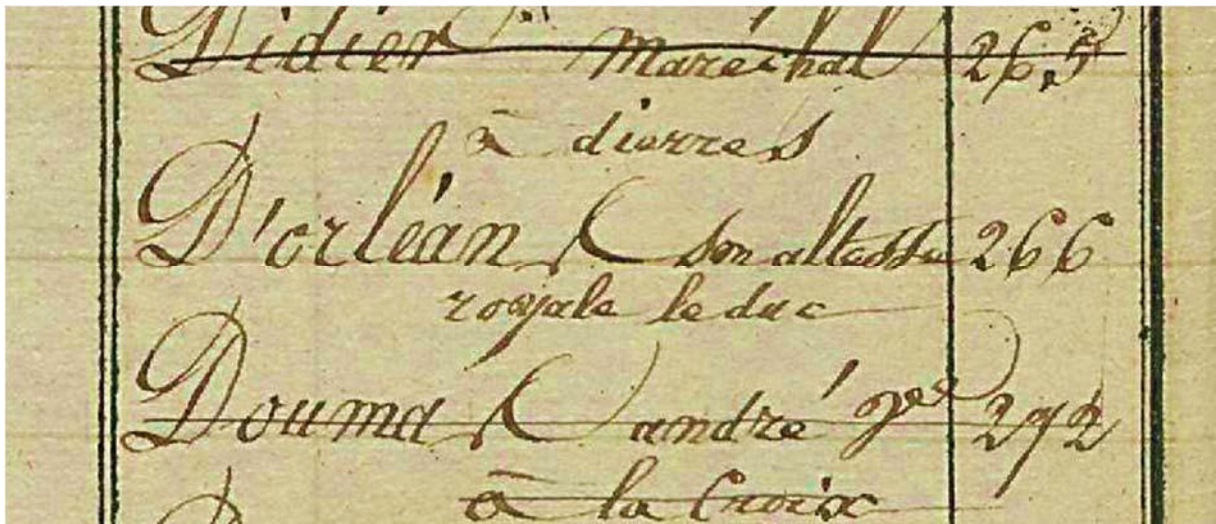 Didier Maréchal 265
à dierres
D'orléan son altesse 266
royale le duc
Douma andré 272
à la Croix